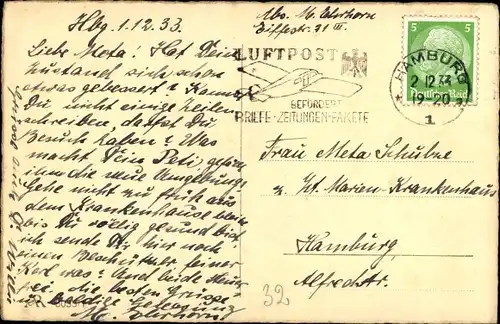 Hbg. 1.12.33.
Abs. M.
Eiffestr. 71 III.
Liebe Meta! Hat Dein
Zustand sich schon
etwas gebessert u. kannst
Du nicht einige Zeilen
schreiben, darfst Du
Besuch haben? Was
macht Dein Peti,
ihm die neue Umgebung?
Gehe nicht zu früh aus
dem Krankenhause
bis Du völlig gesund bist.
ich sende Dir hier noch
einen Beschützer feiner
Kerl was? Und beide
die besten Grüsse
baldige Genesung
M.
LUFTPOST
BEFÖRDERT
BRIEFE·ZEITUNGEN·PAKETE
HAMBURG
2.12.33
19-20
1
5 5
Deutsches Reich
Frau Meta Schulze
z. Zt. Marien-Krankenhaus
Hamburg
Alfredstr.
32